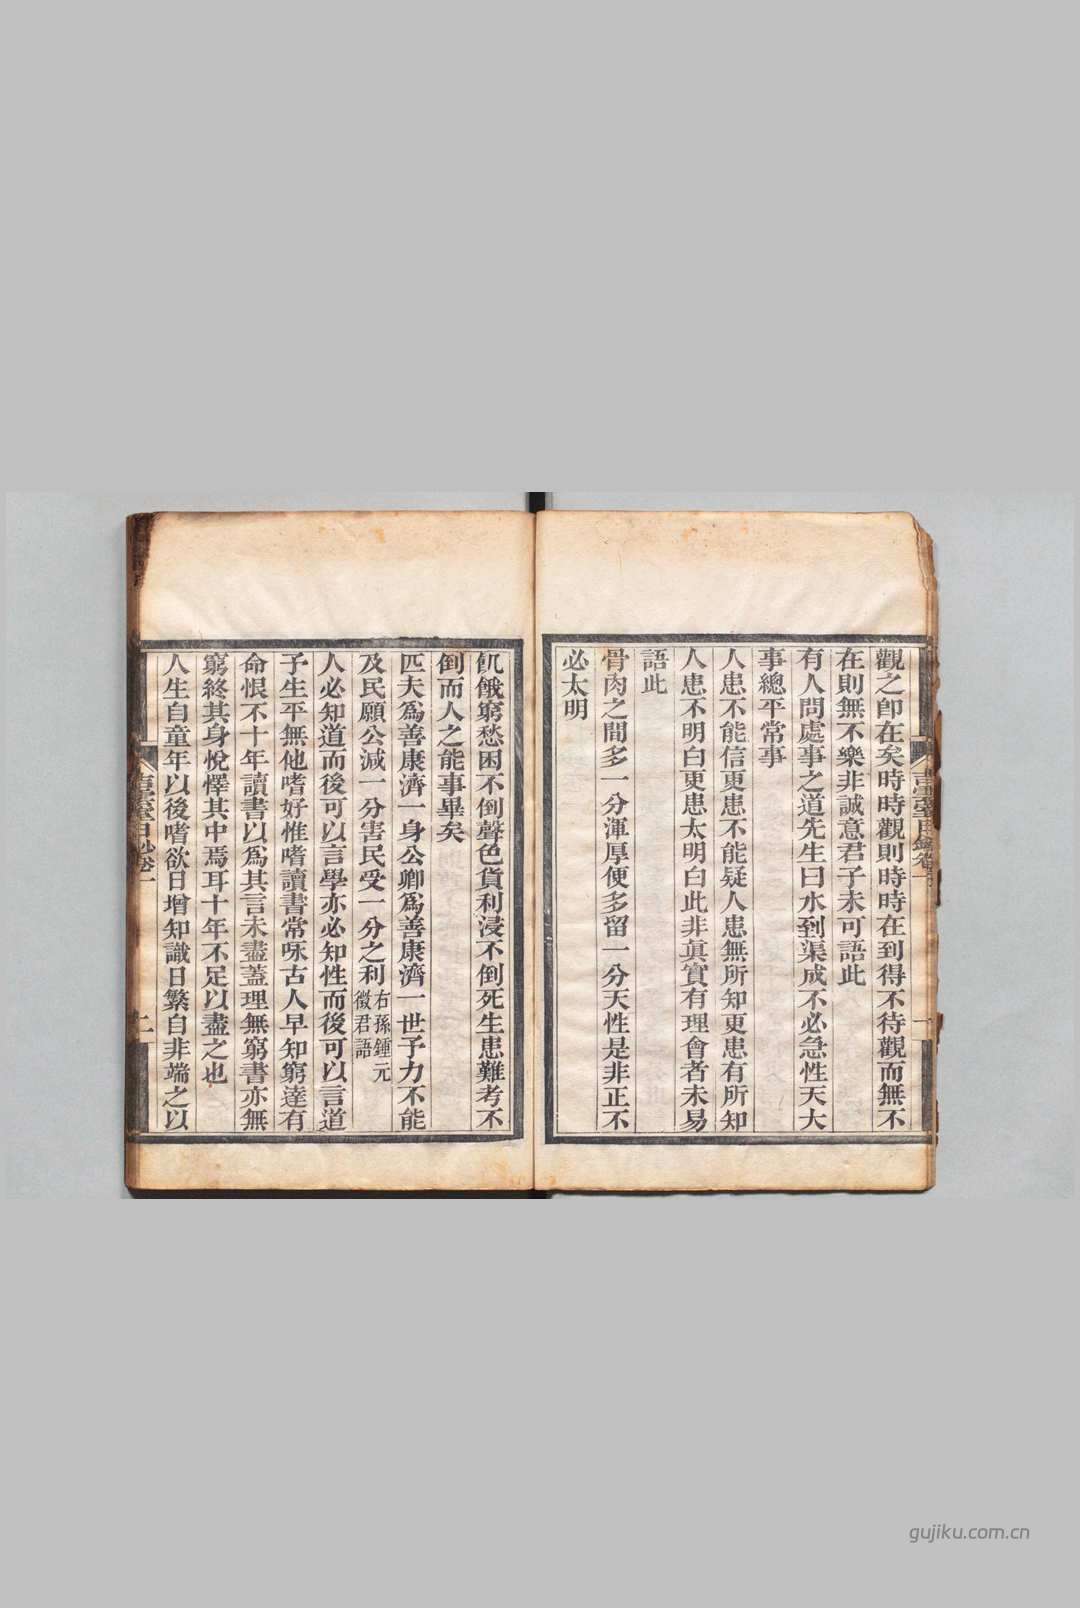 觀之卽在矣時時觀則時時在到得不待觀而無不
在則無不樂非誠意君子未可語此
有人問處事之道先生曰水到渠成不必急性天大
事總平常事
人患不能信更患不能疑人患無所知更患有所知
人患不明白更患太明白此非眞實有理會者未易
語此
骨肉之間多一分渾厚便多留一分天性是非正不
必太明
飢餓窮愁困不倒聲色貨利浸不倒死生患難考不
倒而人之能事畢矣
匹夫爲善康濟一身公卿爲善康濟一世予力不能
及民願公減一分害民受一分之利右孫鍾元
徵君語
人必知道而後可以言學亦必知性而後可以言道
子生平無他嗜好惟嗜讀書常咏古人早知窮達有
命恨不十年讀書以爲其言未盡蓋理無窮書亦無
窮終其身悅懌其中焉耳十年不足以盡之也
人生自童年以後嗜欲日增知識日繁自非端之以
卷一
二
gujiku.com.cn